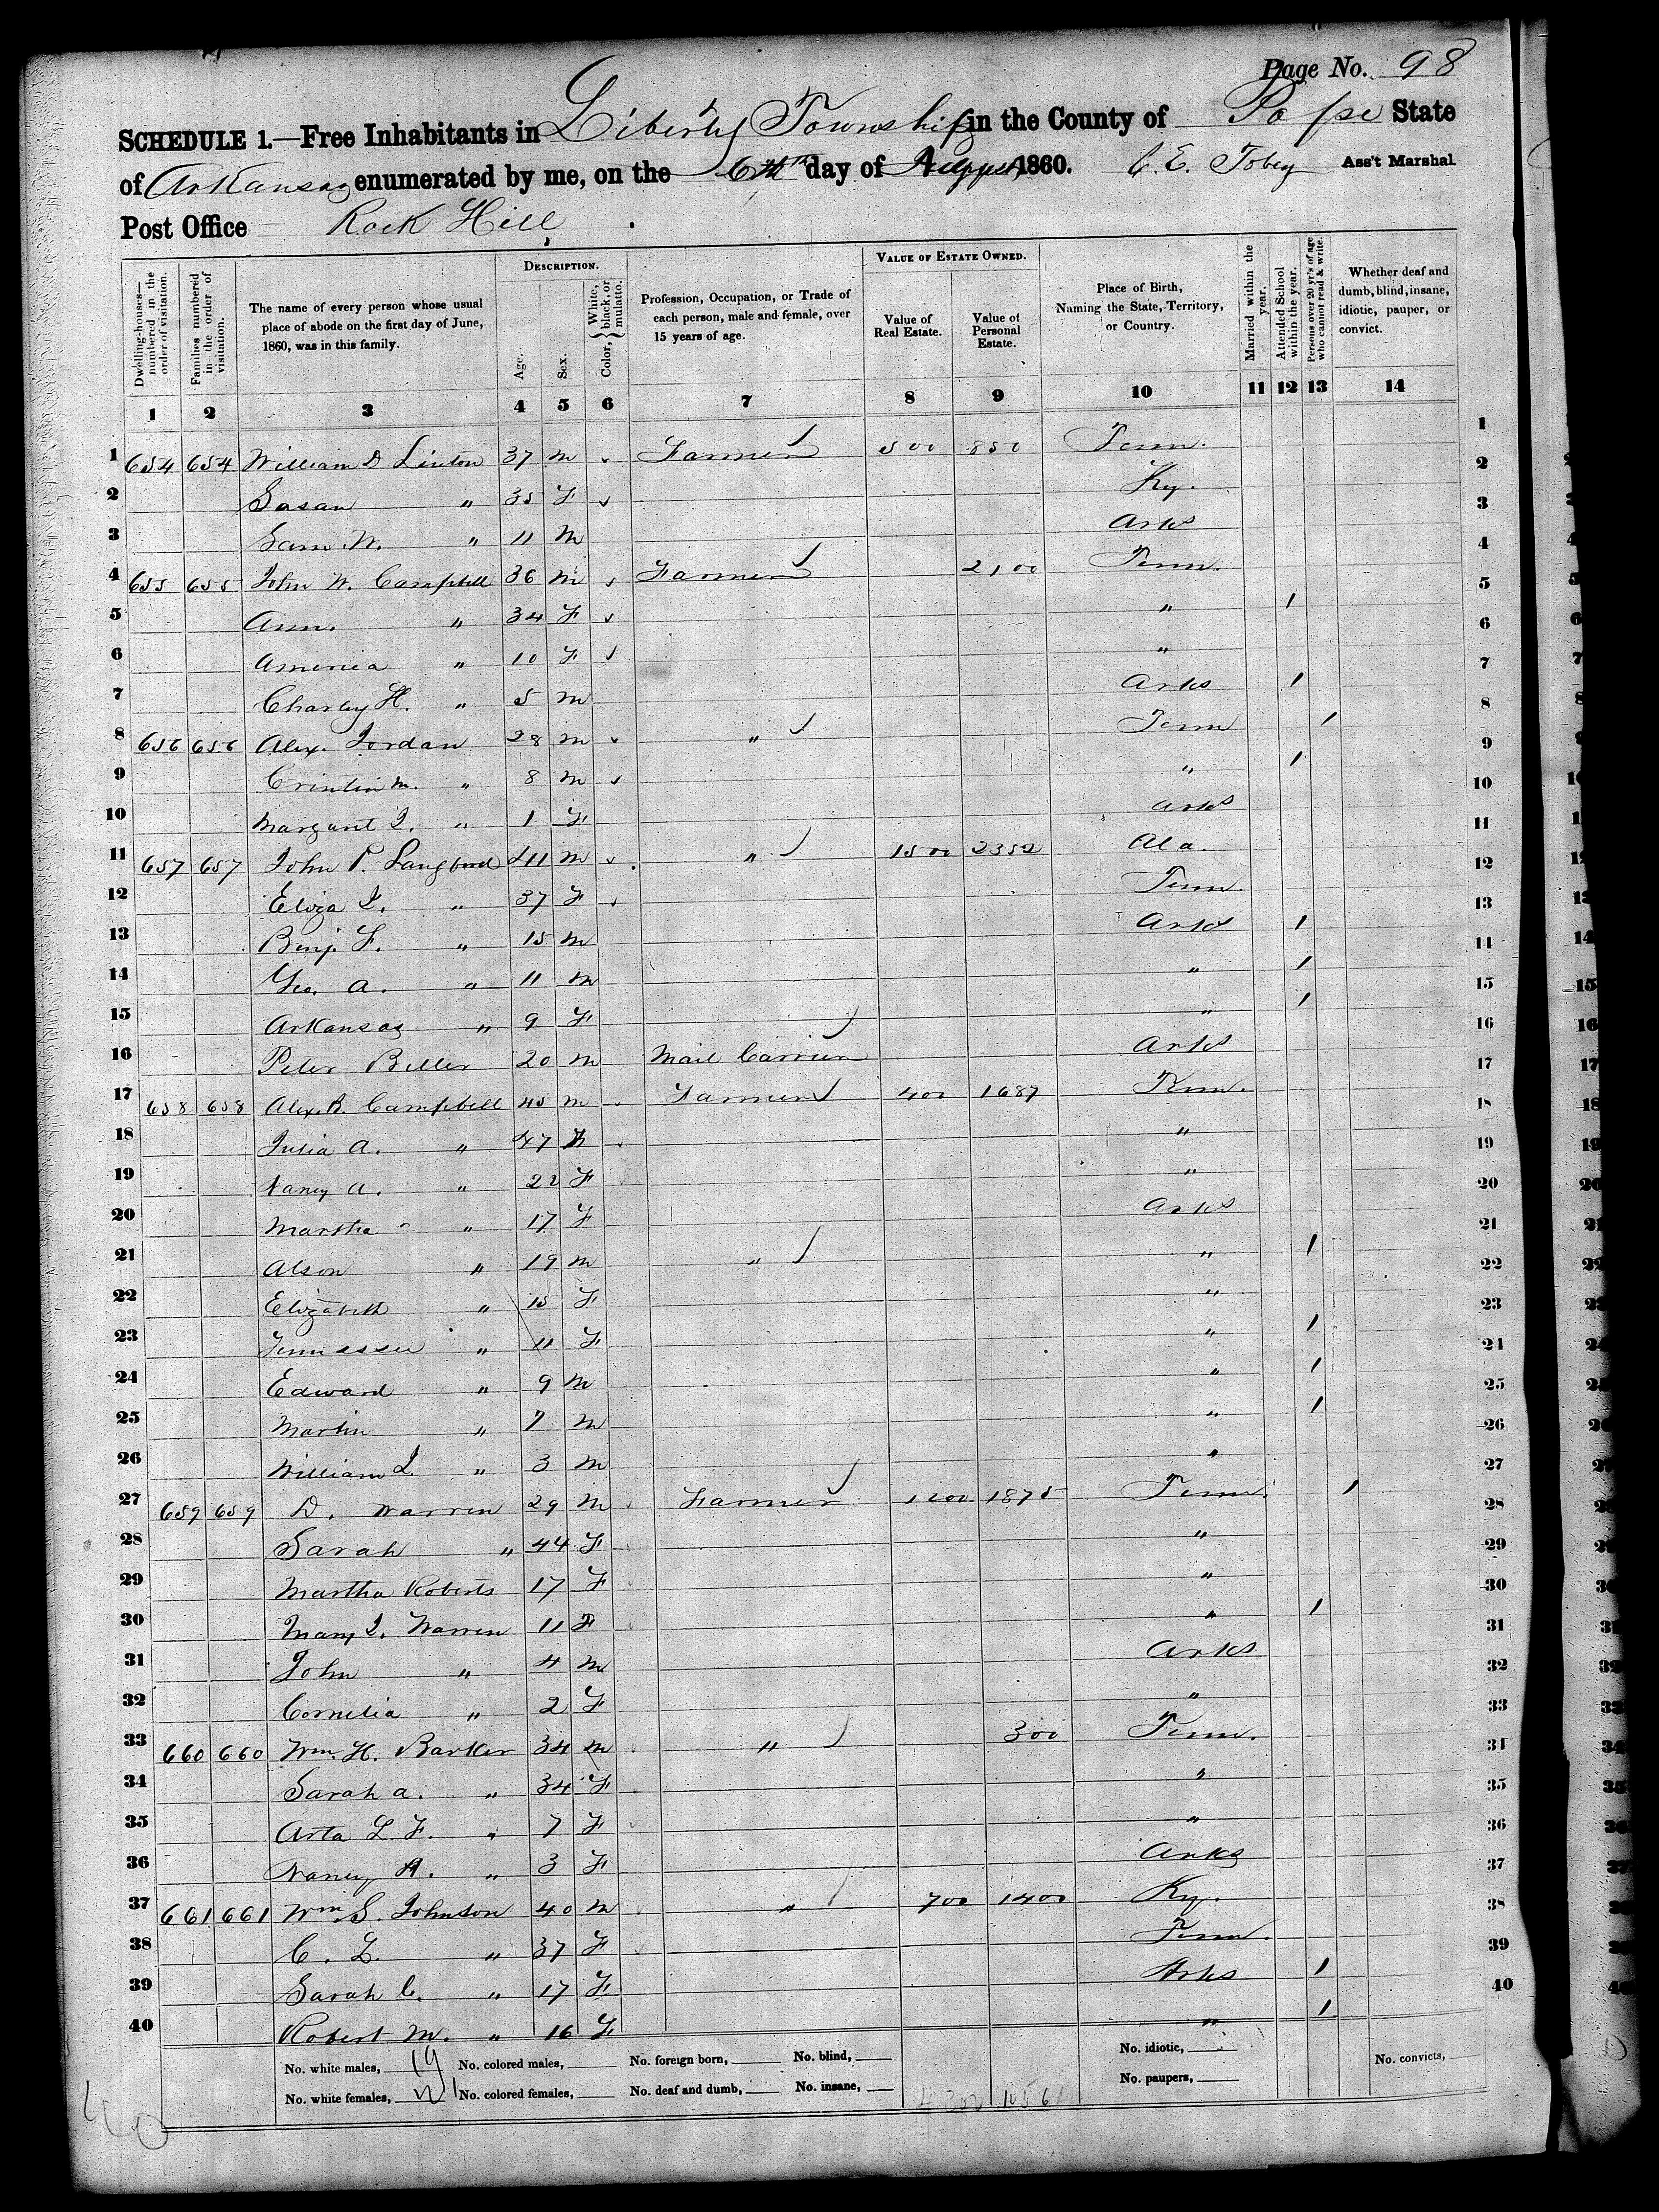 Page No. 98
SCHEDULE 1.—Free Inhabitants in Liberty Township in the County of Pope State
of Arkansas enumerated by me, on the 6th day of August 1860. C. E. Tobey Ass't Marshal
Post Office Rock Hill
Dwelling-houses—numbered in the order of visitation.
Families numbered in the order of visitation.
The name of every person whose usual place of abode on the first day of June, 1860, was in this family.
DESCRIPTION.
Age.
Sex.
Color, White, black, or mulatto.
Profession, Occupation, or Trade of each person, male and female, over 15 years of age.
VALUE OF ESTATE OWNED.
Value of Real Estate.
Value of Personal Estate.
Place of Birth, Naming the State, Territory, or Country.
Married within the year.
Attended School within the year.
Persons over 20 yr's of age who cannot read & write.
Whether deaf and dumb, blind, insane, idiotic, pauper, or convict.
1 2 3 4 5 6 7 8 9 10 11 12 13 14
1 654 654 William D Linton 37 m Farmer 500 850 Tenn. 1
2 Susan " 35 F Ky. 2
3 Sam. W. " 11 m Arks 3
4 655 655 John W. Campbell 36 m Farmer 2100 Tenn. 4
5 Ann. " 34 F " 1 5
6 " 10 F " 6
7 Charley H. " 5 m Arks 1 7
8 656 656 Alex. Jordan 28 m " Tenn 1 8
9 " 8 m " 1 9
10 Margaret J. " 1 F Arks 10
11 657 657 John P. Langford 41 m " 1500 2352 Ala. 11
12 Eliza J. " 37 F Tenn. 12
13 Benj. F. " 15 m Arks 1 13
14 Geo. A. " 11 m " 1 14
15 Arkansas " 9 F " 1 15
16 Peter Biller 20 m Mail Carrier Arks 16
17 658 658 Alex. B. Campbell 45 m Farmer 400 1687 Tenn. 17
18 Julia A. " 47 F " 18
19 Nancy A. " 22 F " 19
20 Martha " 17 F Arks 20
21 Alson " 19 m " " 1 21
22 Elizabeth " 15 F " 22
23 Tennessee " 11 F " 1 23
24 Edward " 9 m " 1 24
25 Martin " 7 m " 1 25
26 William J. " 3 m " 26
27 659 659 D. Warren 29 m Farmer 1200 1875 Tenn. 1 27
28 Sarah " 44 F " 28
29 Martha Roberts 17 F " 29
30 Mary J. Warren 11 F " 1 30
31 John " 4 m Arks 31
32 Cornelia " 2 F " 32
33 660 660 Wm. H. Barker 34 m " 300 Tenn. 33
34 Sarah A. " 34 F " 34
35 Arta L F. " 7 F " 35
36 Nancy A. " 3 F Arks 36
37 661 661 Wm S. Johnson 40 m " 700 1400 Ky. 37
38 C. L. " 37 F Tenn. 38
39 Sarah C. " 17 F Arks 1 39
40 Robert M. " 16 F " 1 40
No. white males, 19 No. colored males, No. foreign born, No. blind, No. idiotic, No. convicts,
No. white females, 21 No. colored females, No. deaf and dumb, No. insane, No. paupers,